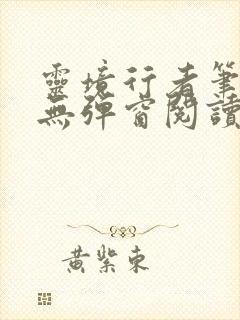 靈境行者筆
無彈窗閱讀
黃紫東